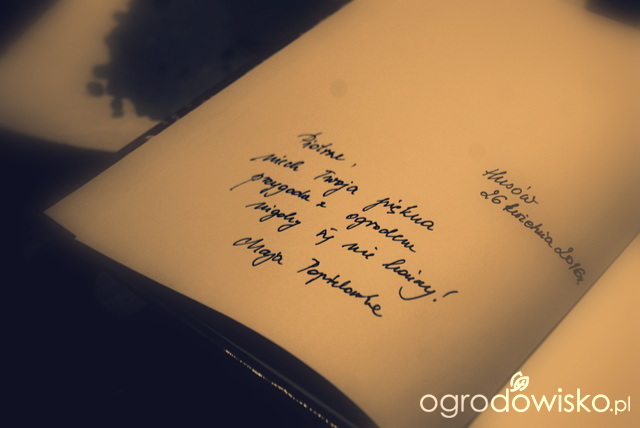 Piotrze,
niech Twoja piękna
przygoda z ogrodem
nigdy się nie kończy!
Maja Popielarska
Husów
26 kwietnia 2016r
ogrodowisko.pl